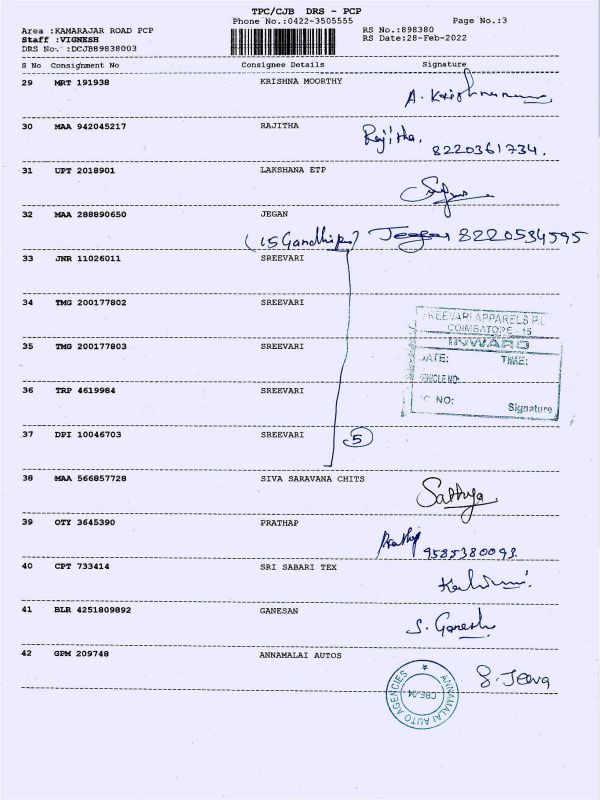 TPC/CJB DRS - PCP
Phone No.:0422-3505555
Page No.:3
Area :KAMARAJAR ROAD PCP
RS No.:898380
Staff :VIGNESH
RS Date:28-Feb-2022
DRS No. :DCJB89838003
S No Consignment No Consignee Details Signature
29 MRT 191938 KRISHNA MOORTHY
30 MAA 942045217 RAJITHA
Rajitha.
8220361734.
31 UPT 2018901 LAKSHANA ETP
32 MAA 288890650 JEGAN
8220534595
33 JNR 11026011 SREEVARI
34 TMG 200177802 SREEVARI
SREEVARI APPARELS P.L
COIMBATORE - 15
INWARD
DATE: TIME:
VEHICLE NO:
NO:
Signature
35 TMG 200177803 SREEVARI
36 TRP 4619984 SREEVARI
37 DPI 10046703 SREEVARI
5
38 MAA 566857728 SIVA SARAVANA CHITS
Sathya
39 OTY 3645390 PRATHAP
Prathap 9585380093.
40 CPT 733414 SRI SABARI TEX
41 BLR 4251809892 GANESAN
S. Ganesh
42 GPM 209748 ANNAMALAI AUTOS
S. Jeeva
ANNAMALAI AUTO AGENCIES
CBE-04